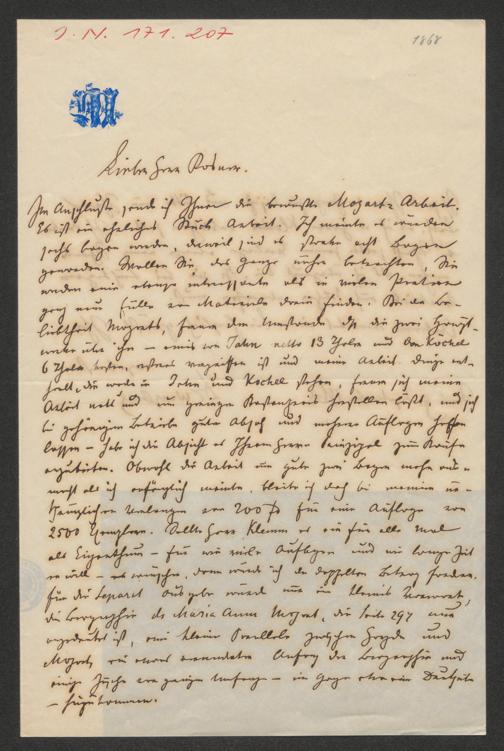 J. N. 171.207
1868
Lieber Herr Rosner.
Im Anschlusse sende ich Ihnen die bewusste Mozart Arbeit.
Es ist ein ehrliches Stück Arbeit. Ich meinte es würden
sechs Bogen werden, derweil sind es starke acht Bogen
geworden. Wollen Sie das Ganze näher betrachten, Sie
werden eine ebenso interessante als in vielen Partien
ganz neue Fülle von Materiale darin finden. Bei der Be-
liebtheit Mozarts, ferner dem Umstande dß die zwei Haupt-
werke über ihn – eines von Jahn netto 13 Thaler und von Köchel
6 Thaler kosten, ersteres vergriffen ist und meine Arbeit Dinge ent-
hält, die weder in Jahn und Köchel stehen, ferner sich meine
Arbeit nett und um geringen Kostenpreis herstellen läßt, und sich
bei gehörigem Betriebe guter Absatz und mehrere Auflagen hoffen
lassen – habe ich die Absicht es Ihrem Herrn Prinzipal zum Kaufe
anzubieten. Obwohl die Arbeit um gute zwei Bogen mehr aus-
macht als ich anfänglich meinte, bleibe ich doch bei meinem ur-
sprünglichen Verlangen von 200 f für eine Auflage von
2500 Exemplaren. Sollte Herr Klemm es ein für alle Mal
als Eigenthum – für wie viele Auflagen und wie lange Zeit
er will – es wünschen, dann würde ich den doppelten Betrag fordern.
Für die Separat Ausgabe würde nur ein kleines Vorwort,
die Biographie der Maria Anna Mozart, die Seite 297 nur
angedeutet ist, eine kleine Parallele zwischen Haydn und
Mozart, ein etwas veränderter Anfang der Biographie und
einige Zusätze von geringem Umfange – im Ganzen etwa ein
– hinzukommen.